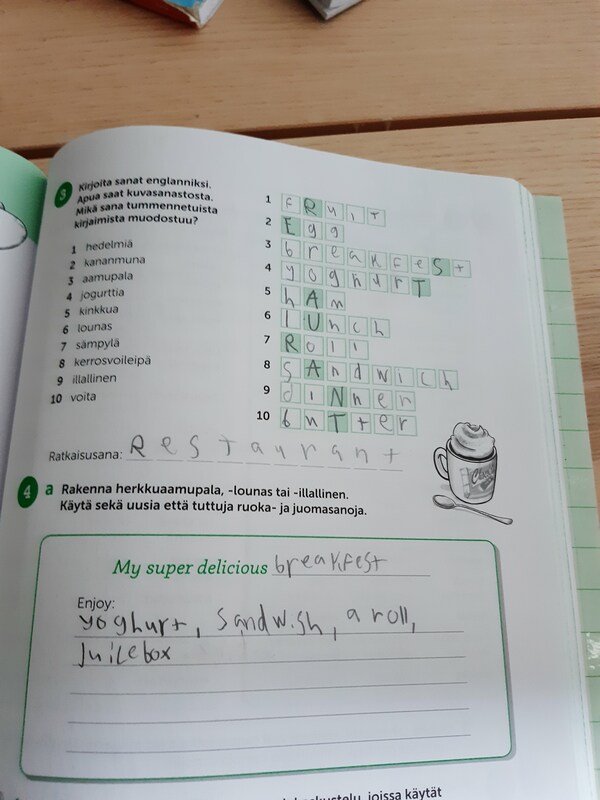 3 Kirjoita sanat englanniksi.
Apua saat kuvasanastosta.
Mikä sana tummennetuista
kirjaimista muodostuu?
1 hedelmiä
2 kananmuna
3 aamupala
4 jogurttia
5 kinkkua
6 lounas
7 sämpylä
8 kerrosvoileipä
9 illallinen
10 voita
1 FRuiT
2 Egg
3 breakfeSt
4 yoghurT
5 hAm
6 lUnch
7 Roll
8 SAndwich
9 diNNer
10 buTter
Ratkaisusana: Restaurant
4 a Rakenna herkkuaamupala, -lounas tai -illallinen.
Käytä sekä uusia että tuttuja ruoka- ja juomasanoja.
My super delicious breakfest
Enjoy:
yoghurt, sandwish, a roll,
Juicebox
joissa käytät